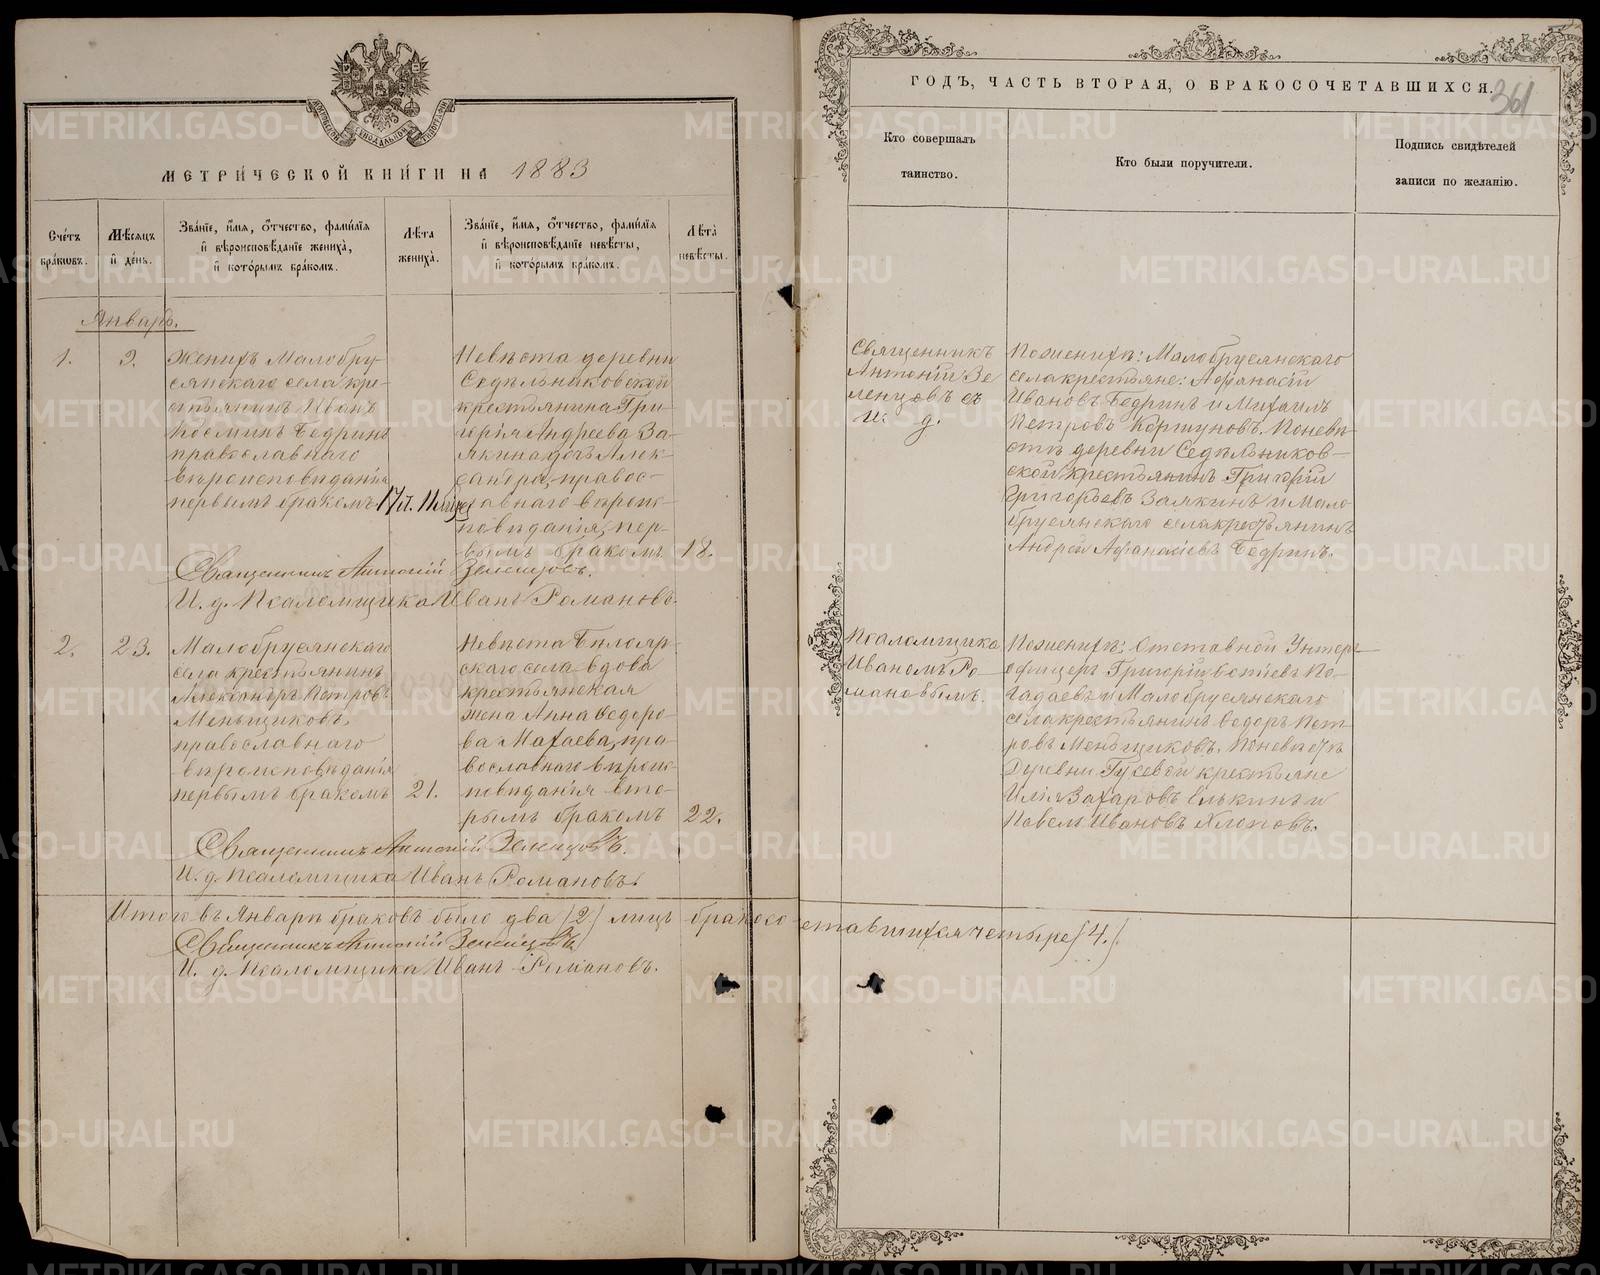 МЕТРИЧЕСКОЙ КНИГИ НА 1883
ГОДЪ, ЧАСТЬ ВТОРАЯ, О БРАКОСОЧЕТАВШИХСЯ.
361
Счетъ браковъ.
Мѣсяцъ и день.
Званіе, имя, отчество, фамилія
и вѣроисповѣданіе жениха,
и которымъ бракомъ.
Лѣта
жениха.
Званіе, имя, отчество, фамилія
и вѣроисповѣданіе невѣсты,
и которымъ бракомъ.
Лѣта
невѣсты.
Кто совершалъ
таинство.
Кто были поручители.
Подпись свидѣтелей
записи по желанію.
Январь.
1.
9.
Женихъ Малобру-
сянскаго села кре-
стьянинъ Иванъ
Косминъ Бедринъ
православнаго
вѣроисповѣданія
первымъ бракомъ
17 л. 11 мѣсяц
Невѣста деревни
Седѣльниковской
крестьянина Гри-
горія Андреева За-
якина дочь Алек-
сандра, правос-
лавнаго вѣроис-
повѣданія, пер-
вымъ бракомъ
18.
Священникъ Антоній Зеленцовъ.
И. д. Псаломщика Иванъ Романовъ.
Священникъ
Антоній Зе
ленцовъ съ
и. д.
По женихѣ: Малобрусянскаго
села крестьяне: Афанасій
Ивановъ Бедринъ и Михаилъ
Петровъ Коршуновъ. По невѣ-
стѣ деревни Седѣльников-
ской крестьянинъ Григорій
Григорьевъ Заякинъ и Мало
брусянскаго села крестьянинъ
Андрей Афанасіевъ Бедринъ.
2.
23.
Малобрусянскаго
села крестьянинъ
Александръ Петровъ
Меньщиковъ,
православнаго
вѣроисповѣданія
первымъ бракомъ
21.
Невѣста Бѣлояр-
скаго села вдова
крестьянская
жена Анна Ѳедоро-
ва Махаева, пра-
вославнаго вѣроис-
повѣданія вто-
рымъ бракомъ
22.
Священникъ Антоній Зеленцовъ.
И. д. Псаломщика Иванъ Романовъ.
Псаломщика
Иваномъ Ро-
мановымъ.
По женихѣ: Отставной Унтеръ
офицеръ Григорій По-
гадаевъ и Малобрусянскаго
села крестьянинъ Ѳедоръ Пет-
ровъ Меньщиковъ. По невѣстѣ
Деревни Гусевой крестьяне
Илія Захаровъ Елькинъ и
Павелъ Ивановъ Хлоповъ.
Итого въ Январѣ браковъ было два (2) лицъ бракосо-четавшихся четыре (4).
Священникъ Антоній Зеленцовъ
И. д. Псаломщика Иванъ Романовъ.
METRIKI.GASO-URAL.RU